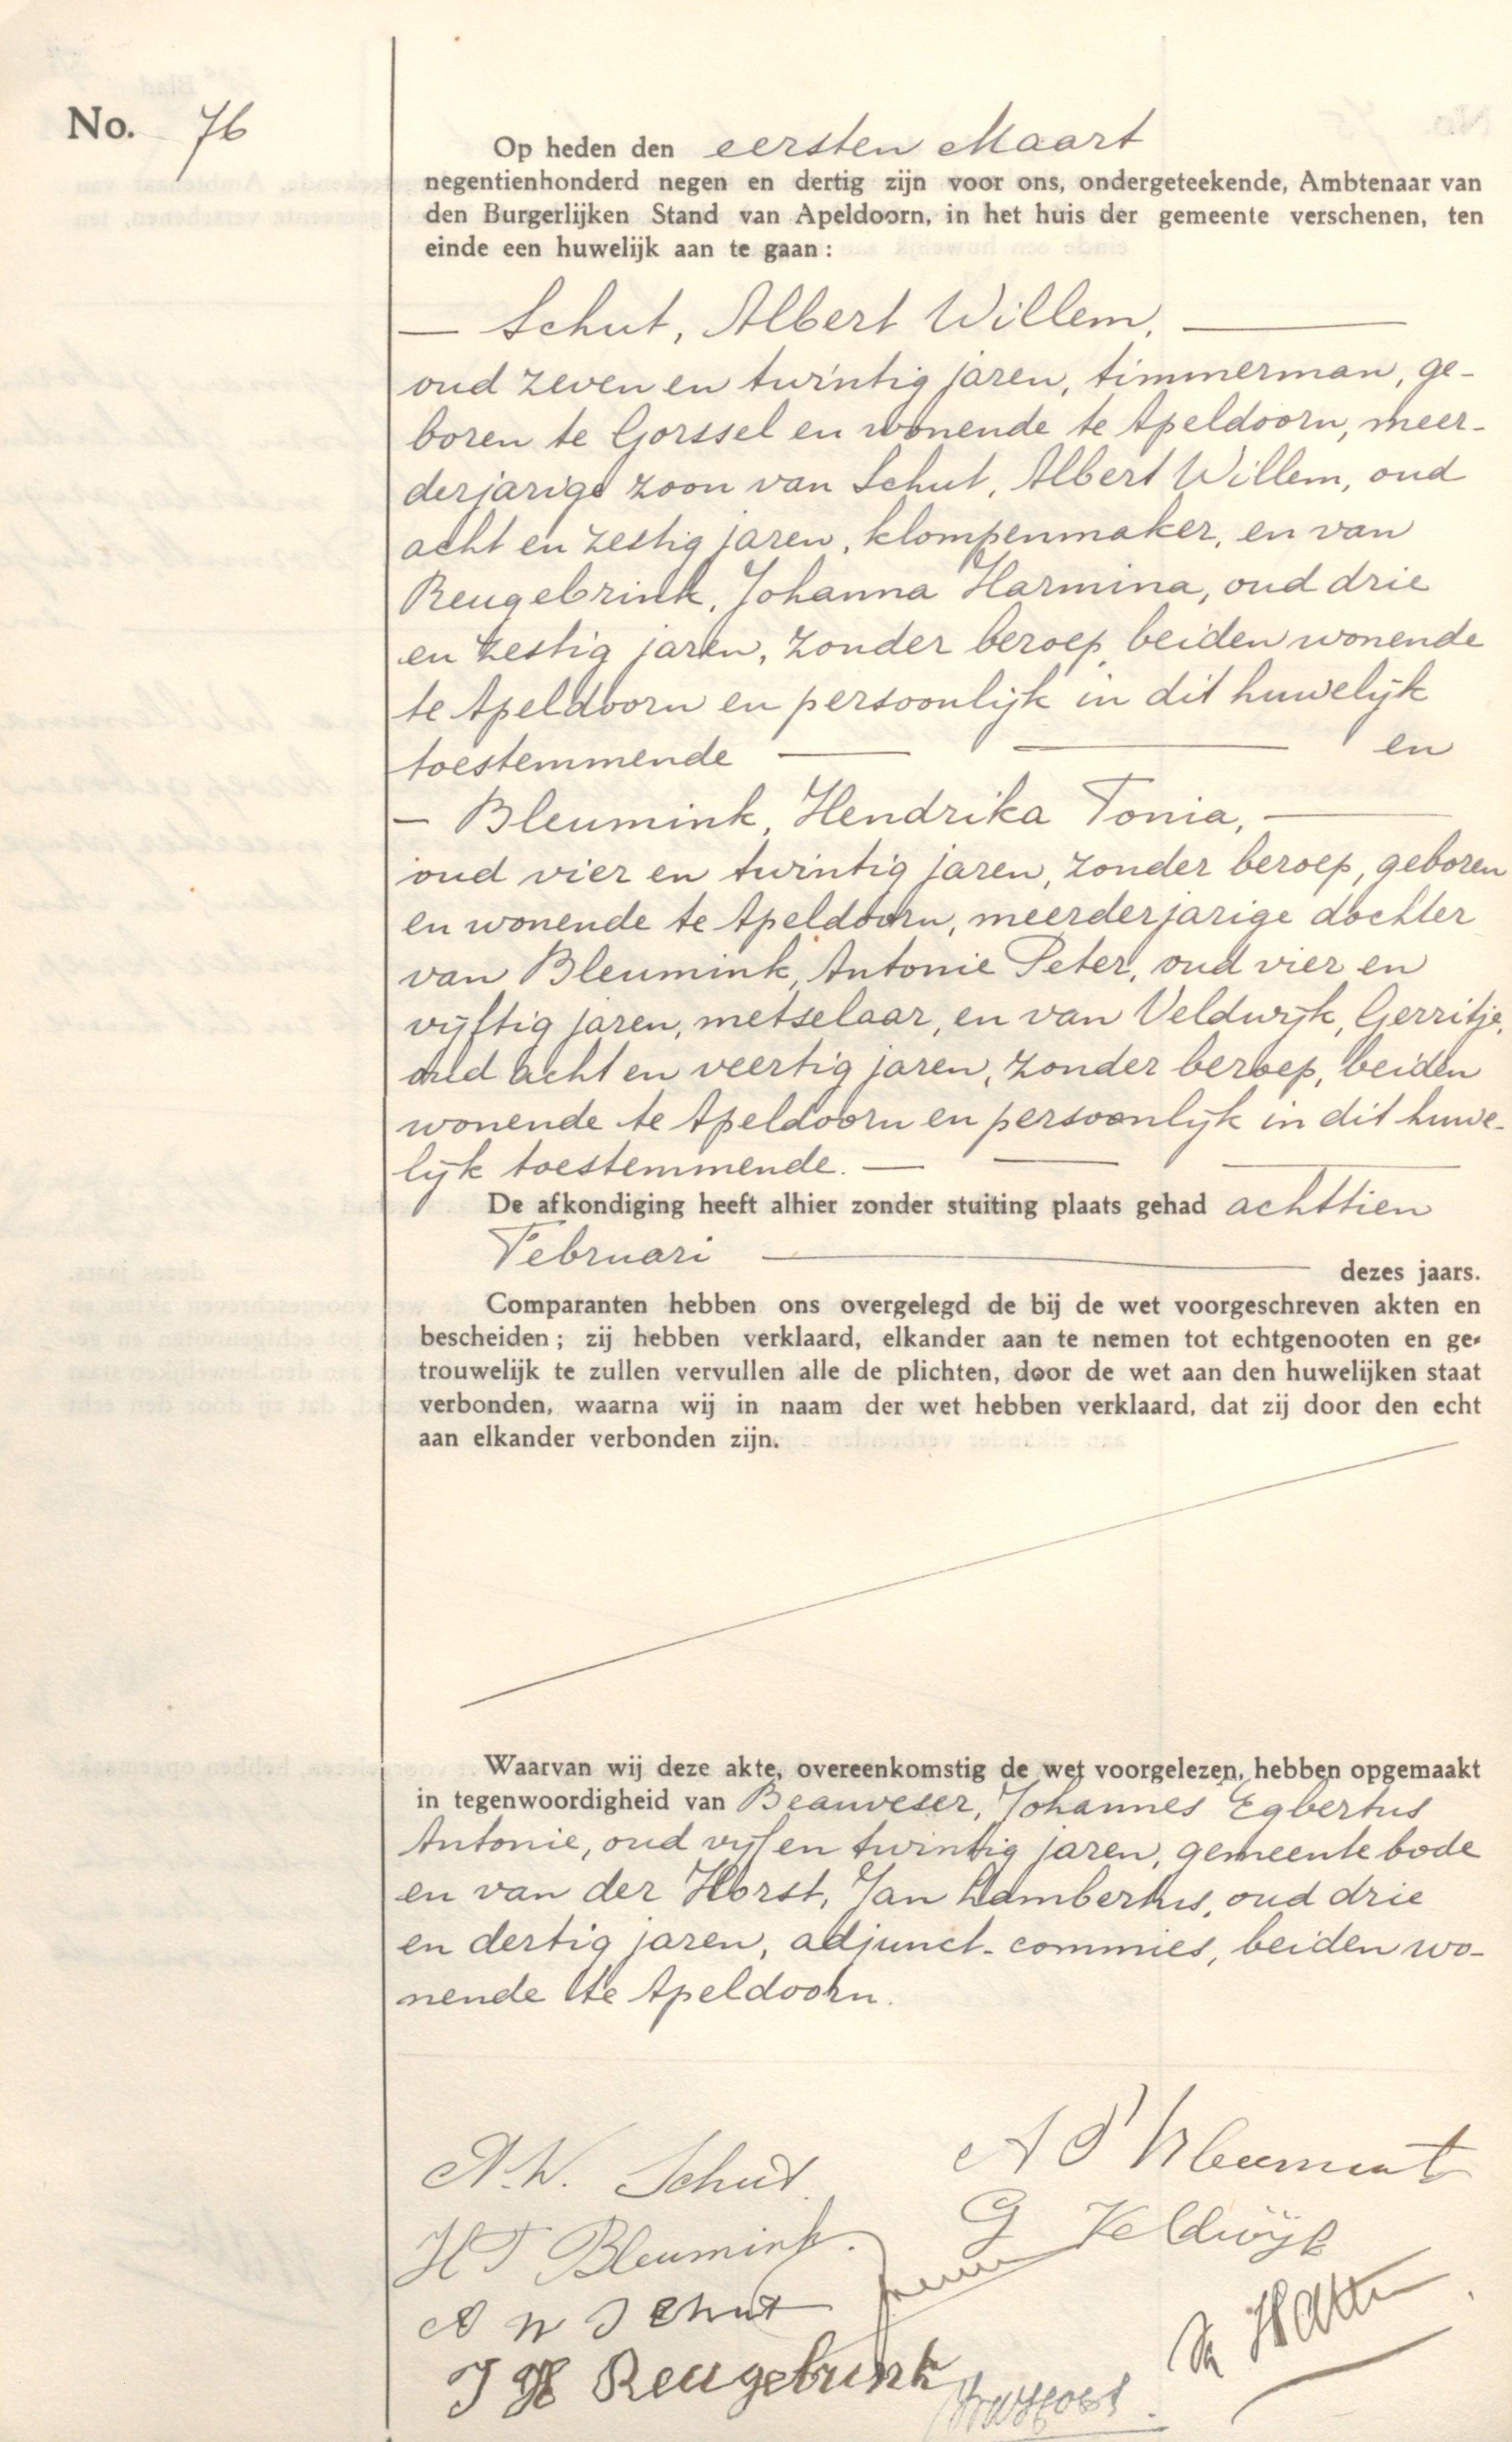 No. 76
Op heden den eersten Maart
negentienhonderd negen en dertig zijn voor ons, ondergeteekende, Ambtenaar van
den Burgerlijken Stand van Apeldoorn, in het huis der gemeente verschenen, ten
einde een huwelijk aan te gaan :
— Schut, Albert Willem, —
oud zeven en twintig jaren, timmerman, ge-
boren te Gorssel en wonende te Apeldoorn, meer-
derjarige zoon van Schut, Albert Willem, oud
acht en zestig jaren, klompenmaker, en van
Reugebrink, Johanna Harmina, oud drie
en zestig jaren, zonder beroep, beiden wonende
te Apeldoorn en persoonlijk in dit huwelijk
toestemmende — — en
— Bleumink, Hendrika Tonia, —
oud vier en twintig jaren, zonder beroep, geboren
en wonende te Apeldoorn, meerderjarige dochter
van Bleumink, Antonie Peter, oud vier en
vijftig jaren, metselaar, en van Veldwijk, Gerritje,
oud acht en veertig jaren, zonder beroep, beiden
wonende te Apeldoorn en persoonlijk in dit huwe-
lijk toestemmende. — — —
De afkondiging heeft alhier zonder stuiting plaats gehad achttien
Februari — dezes jaars.
Comparanten hebben ons overgelegd de bij de wet voorgeschreven akten en
bescheiden ; zij hebben verklaard, elkander aan te nemen tot echtgenooten en ge-
trouwelijk te zullen vervullen alle de plichten, door de wet aan den huwelijken staat
verbonden, waarna wij in naam der wet hebben verklaard, dat zij door den echt
aan elkander verbonden zijn.
Waarvan wij deze akte, overeenkomstig de wet voorgelezen, hebben opgemaakt
in tegenwoordigheid van Beauveser, Johannes Egbertus
Antonie, oud vijf en twintig jaren, gemeentebode
en van der Horst, Jan Lambertus, oud drie
en dertig jaren, adjunct-commies, beiden wo-
nende te Apeldoorn.
A. W. Schut.
A P Bleumink
H T Bleumink.
G Veldwijk
A W Schut
J H Reugebrink